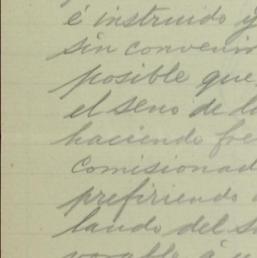 é instruido y
sin convenir
posible que
el seno de l
haciendo fre
Comisionad
prefiriendo
laudo del S
vorable á u